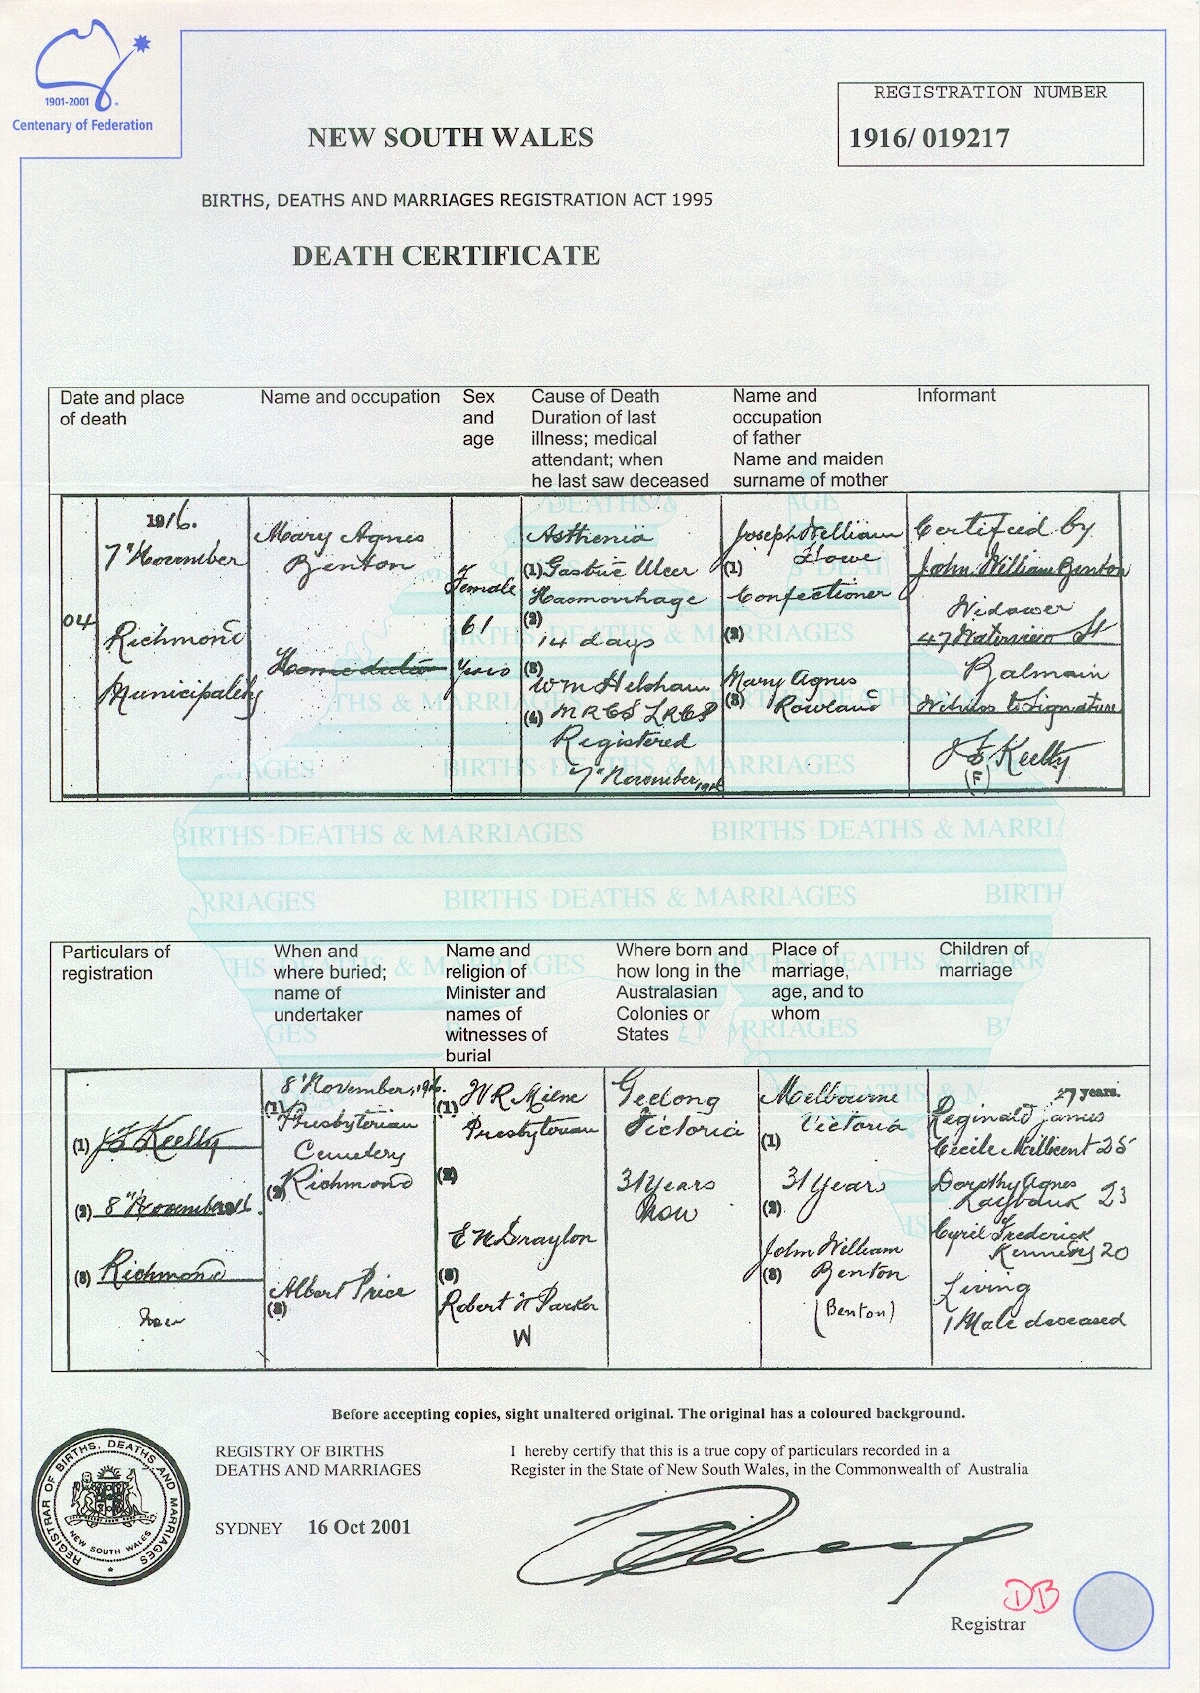 1901-2001
Centenary of Federation
REGISTRATION NUMBER
1916/ 019217
NEW SOUTH WALES
BIRTHS, DEATHS AND MARRIAGES REGISTRATION ACT 1995
DEATH CERTIFICATE
Date and place
of death
Name and occupation
Sex
and
age
Cause of Death
Duration of last
illness; medical
attendant; when
he last saw deceased
Name and
occupation
of father
Name and maiden
surname of mother
Informant
04
1916.
7" November
Richmond
Municipality
Mary Agnes
Benton
Home duties
Female
61
years
Asthenia
(1) Gastric Ulcer
Haemorrhage
(2)
14 days
(3)
Wm Helsham
(4) MRCS LRCP
Registered
7" November 1916
Joseph William
Howe
(1)
Confectioner
(2)
Mary Agnes
(3) Rowland
Certified by
John William Benton
Widower
47 Waterview St
Balmain
Witness to Signature
J Keelty
(F)
Particulars of
registration
When and
where buried;
name of
undertaker
Name and
religion of
Minister and
names of
witnesses of
burial
Where born and
how long in the
Australasian
Colonies or
States
Place of
marriage,
age, and to
whom
Children of
marriage
(1) Keelty
(2) 8" November 16.
(3) Richmond
8" November, 1916.
(1)
Presbyterian
Cemetery
Richmond
(2)
Albert Price
(3)
W R Milne
(1)
Presbyterian
(2)
E W Draylon
(3)
Robert W Parker
W
Geelong
Victoria
31 Years
NSW
Melbourne
Victoria
(1)
31 Years
(2)
John William
(3) Benton
(Benton)
27 years.
Reginald James
Cecile Millicent 25
Dorothy Agnes
23
Cyril Frederick
Kennedy 20
Living
1 Male deceased
Before accepting copies, sight unaltered original. The original has a coloured background.
REGISTRAR OF BIRTHS, DEATHS AND MARRIAGES
NEW SOUTH WALES
REGISTRY OF BIRTHS
DEATHS AND MARRIAGES
SYDNEY 16 Oct 2001
I hereby certify that this is a true copy of particulars recorded in a
Register in the State of New South Wales, in the Commonwealth of Australia
DB
Registrar